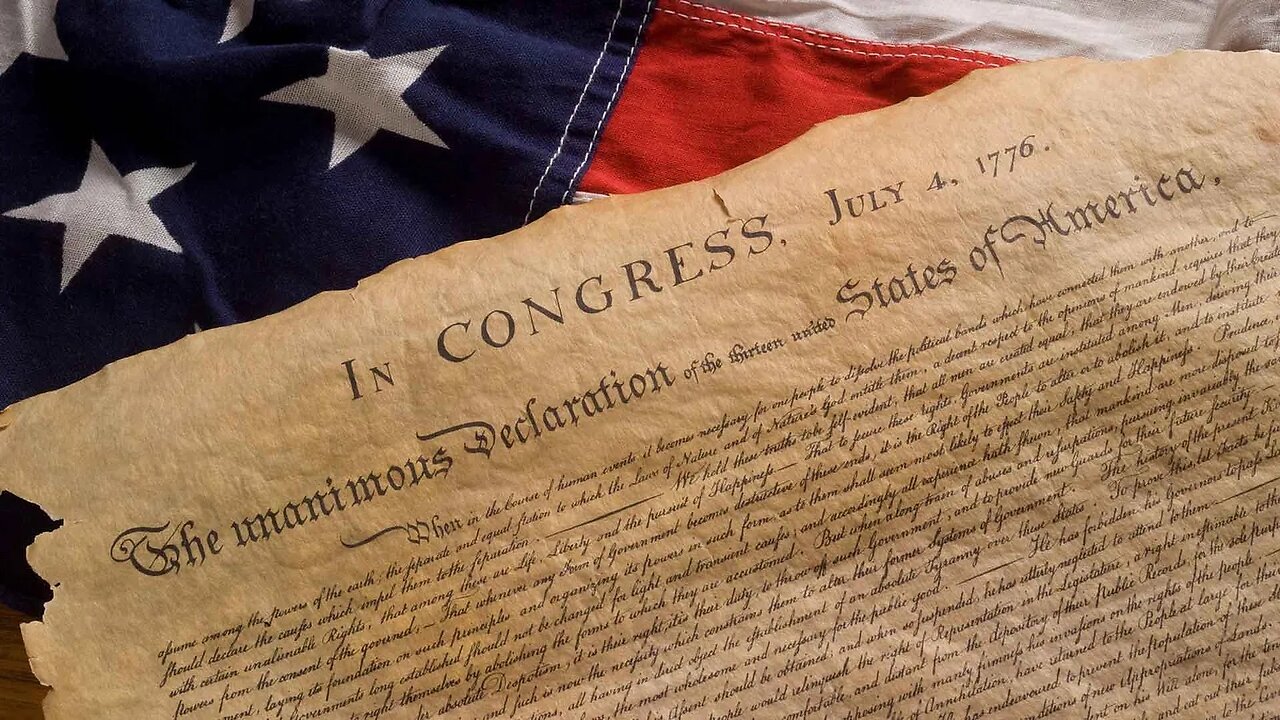 In CONGRESS, July 4, 1776.
The unanimous Declaration of the thirteen united States of America,
When in the Course of human events it becomes neceſsary for one people to dissolve the political bands which have connected them with another, and to
aſsume among the powers of the earth, the separate and equal station to which the Laws of Nature and of Nature's God entitle them, a decent respect to the opinions of mankind requires that they
should declare the causes which impel them to the separation. — We hold these truths to be self-evident, that all men are created equal, that they are endowed by their
with certain unalienable Rights, that among these are Life, Liberty and the pursuit of Happineſs.— That to secure these rights, Governments are instituted among Men, deriving their
powers from the consent of the governed,— That whenever any Form of Government becomes destructive of these ends, it is the Right of the People to alter or to abolish it, and to institute
ment, laying its foundation on such principles and organizing its powers in such form, as to them shall seem most likely to effect their Safety and Happineſs. Prudence,
Governments long established should not be changed for light and transient causes; and accordingly all experience hath shewn, that mankind are more disposed to
to right themselves by abolishing the forms to which they are accustomed. But when a long train of abuses and usurpations, pursuing invariably the
absolute Despotism, it is their right, it is their duty, to throw off such Government, and to provide new Guards for their future security.
and such is now the neceſsity which constrains them to alter their former Systems of Government. The history of the present
all having in direct object the establishment of an absolute Tyranny over these States. To prove this, let Facts be
Aſsent the most wholesome and neceſsary for the public good. He has forbidden his Governors to paſs
should be obtained; and when so suspended, he has utterly neglected to attend to them.
people would relinquish the right of Representation in the Legislature, a right inestimable to
comfortable, and distant from the depository of their Public Records, for the sole
opposing with manly firmneſs his invasions on the rights of the people
of Annihilation, have returned to the People at large for their
He has endeavoured to prevent the population of these
conditions of new Appropriations of Lands.
on his Will alone, for the
and eat out their